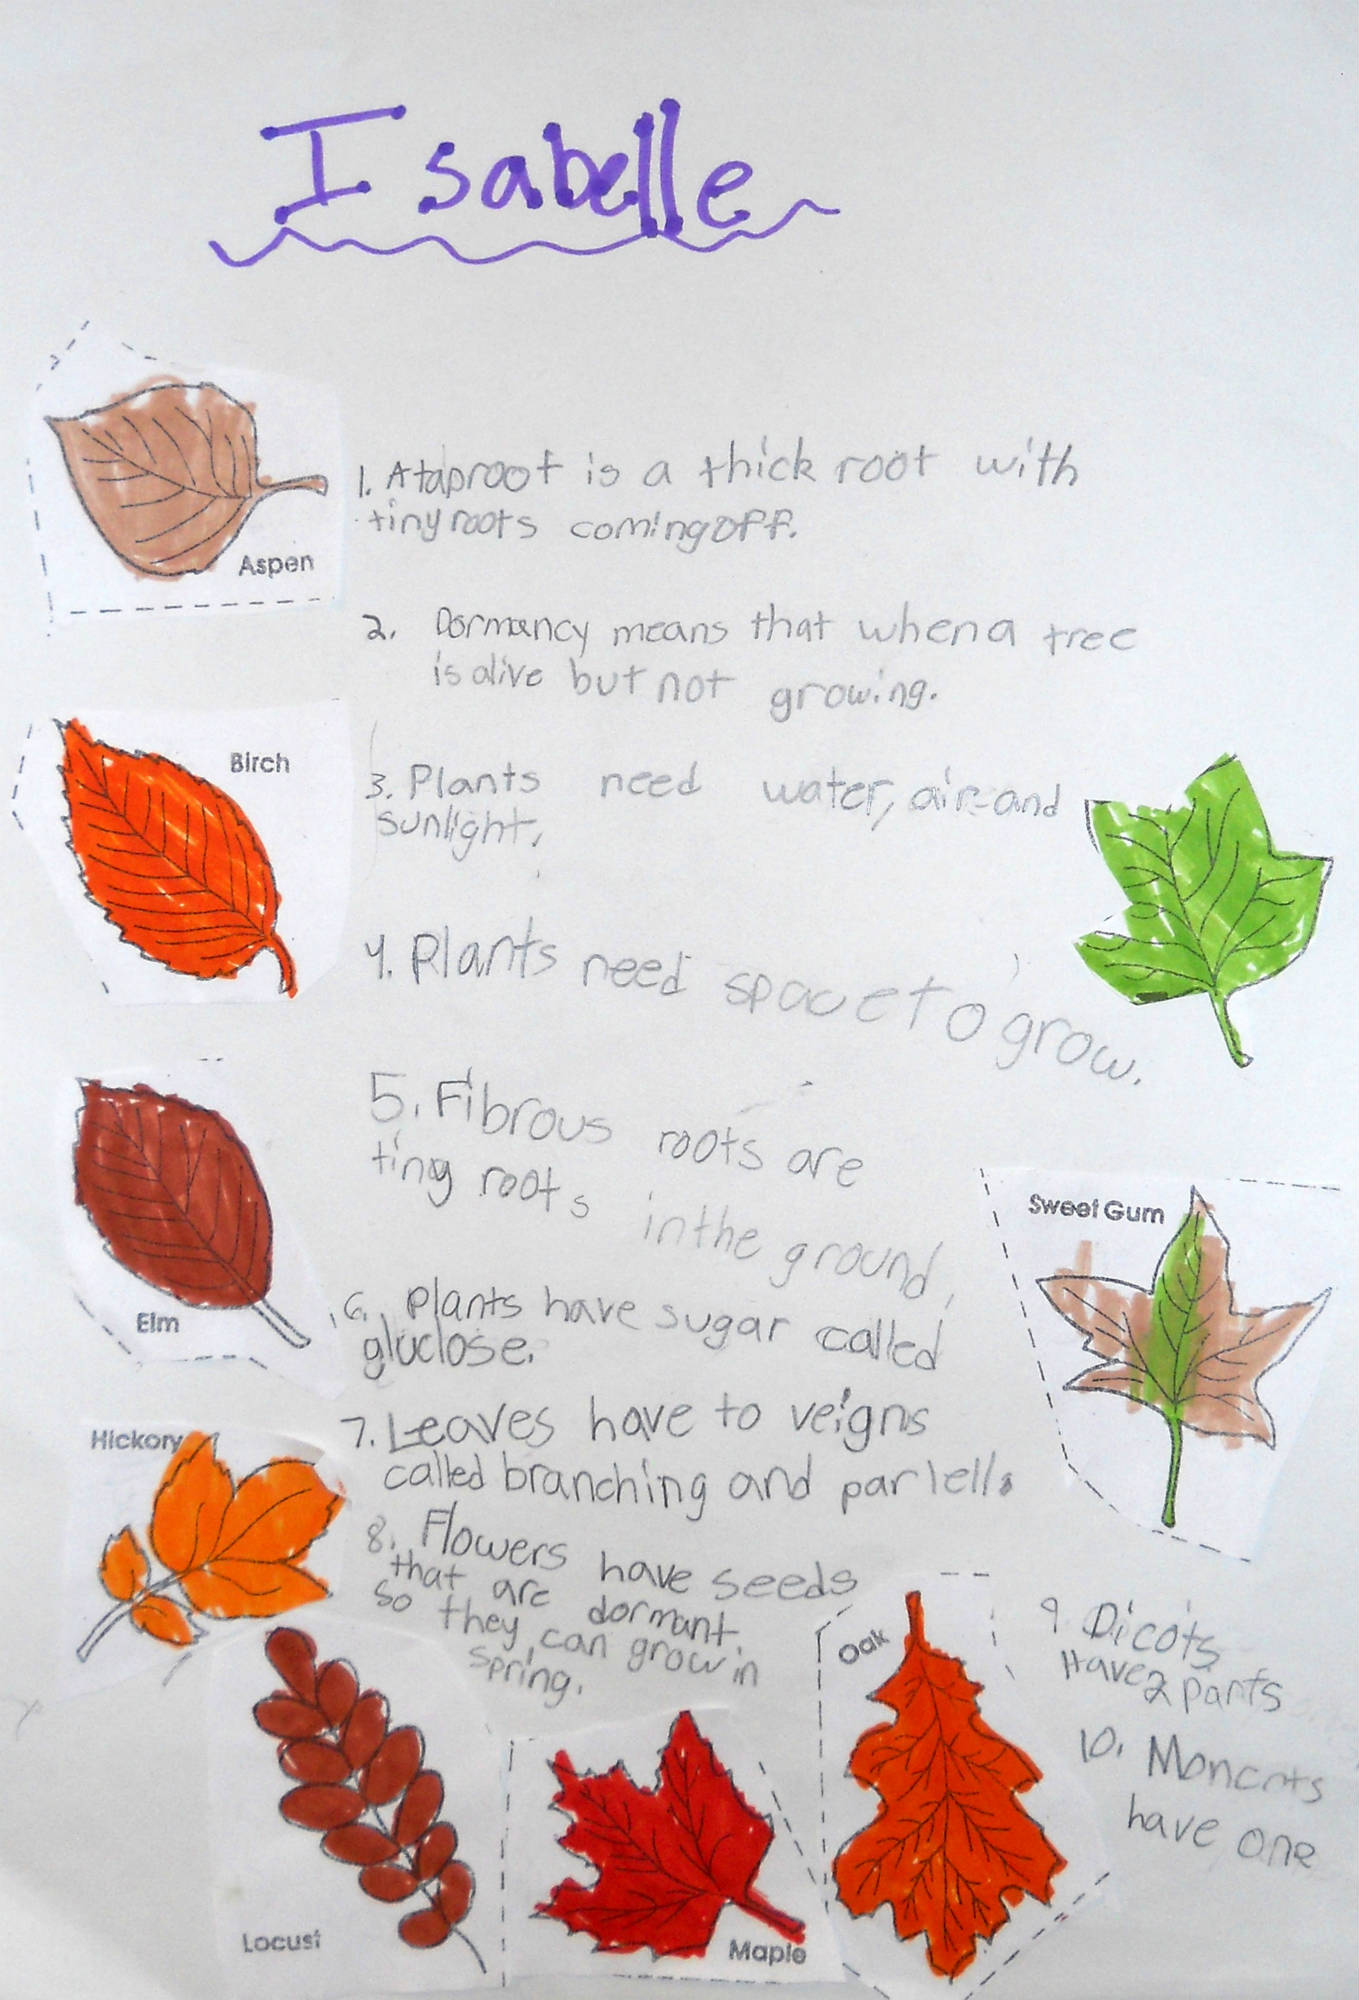 Isabelle
Aspen
1. A taproot is a thick root with
tiny roots coming off.
2. Dormancy means that when a tree
is alive but not growing.
Birch
3. Plants need water, air and
sunlight.
4. Plants need space to grow.
5. Fibrous roots are
tiny roots in the ground.
Sweet Gum
Elm
6. Plants have sugar called
gluclose.
Hickory
7. Leaves have to veigns
called branching and parlell.
8. Flowers have seeds
that are dormant
so they can grow in
spring.
Oak
9. Dicots
Have 2 parts
10. Moncots
have one
Locust
Maple